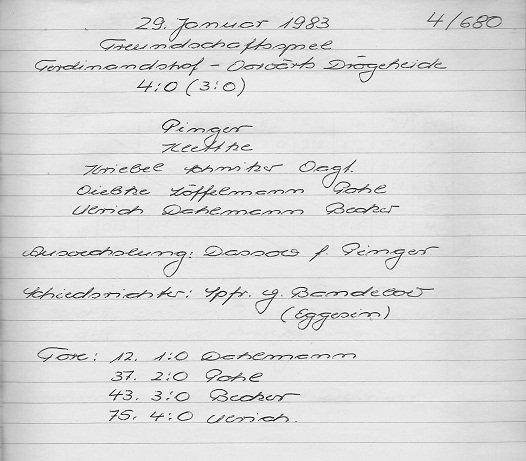 29. Januar 1983 4/680
Freundschaftsspiel
Ferdinandshof - Vorwärts Drögeheide
4:0 (3:0)
Pinger
Kliethe
Kriebel Schnitzer Voigt.
Dießke Löffelmann Pohl
Ulrich Dahlmann Becker
Auswechslung: Dassow f. Pinger
Schiedsrichter: Spfr. g. Bandelow
(Eggesin)
Tore: 12. 1:0 Dahlmann
37. 2:0 Pohl
43. 3:0 Becker
75. 4:0 Ulrich.